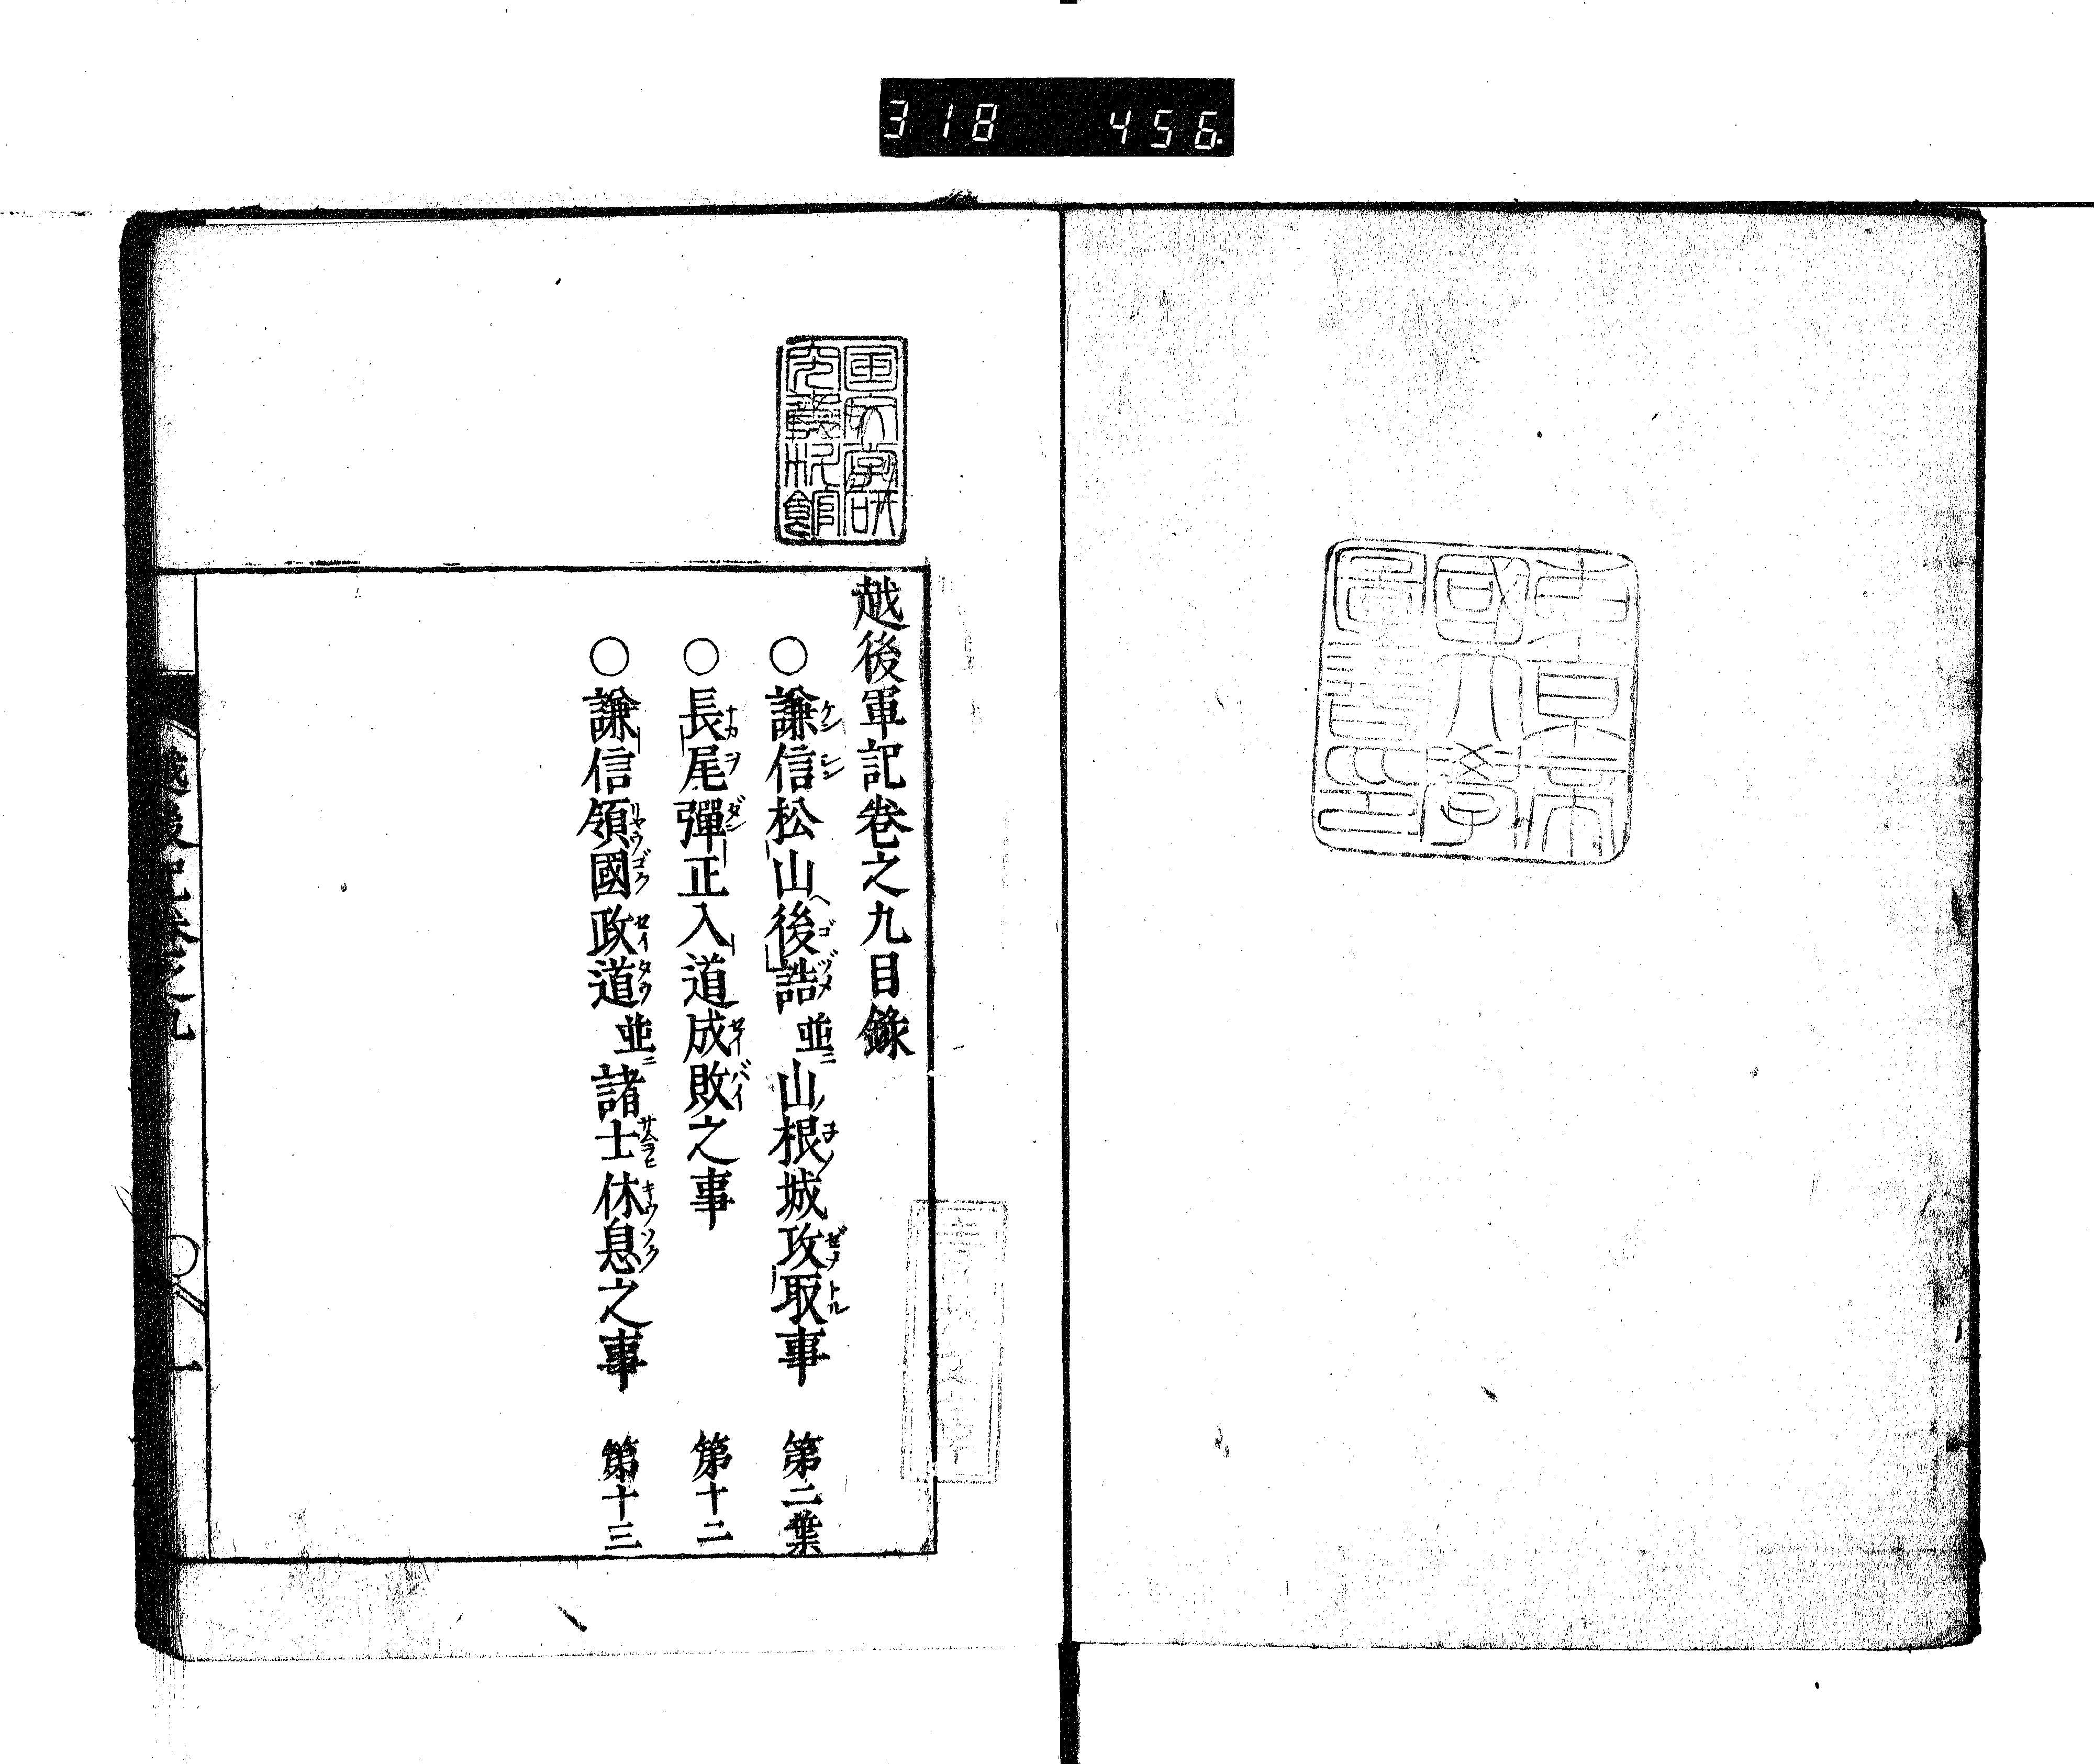 318 456
東京帝
國大學
圖書印
国文学研
究資料館
越後軍記巻之九目錄
○謙信松山後誥並山根城攻取事 第二葉
○長尾彈正入道成敗之事 第十二
○謙信領國政道並諸士休息之事 第十三
越後記巻之九 ○ 一